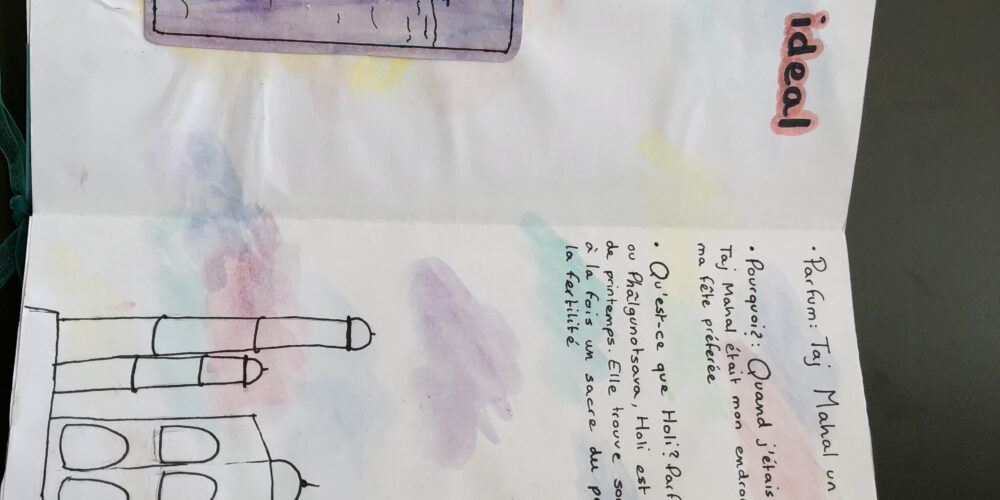 ideal
• Parfum: Taj Mahal un
• Pourquoi?: Quand j'étais
Taj Mahal était mon
ma fête préferée
• Qu'est-ce que Holi?
ou Phâlgunotsava, Holi est
de printemps. Elle trouve
à la fois un sacre du
la fertilité